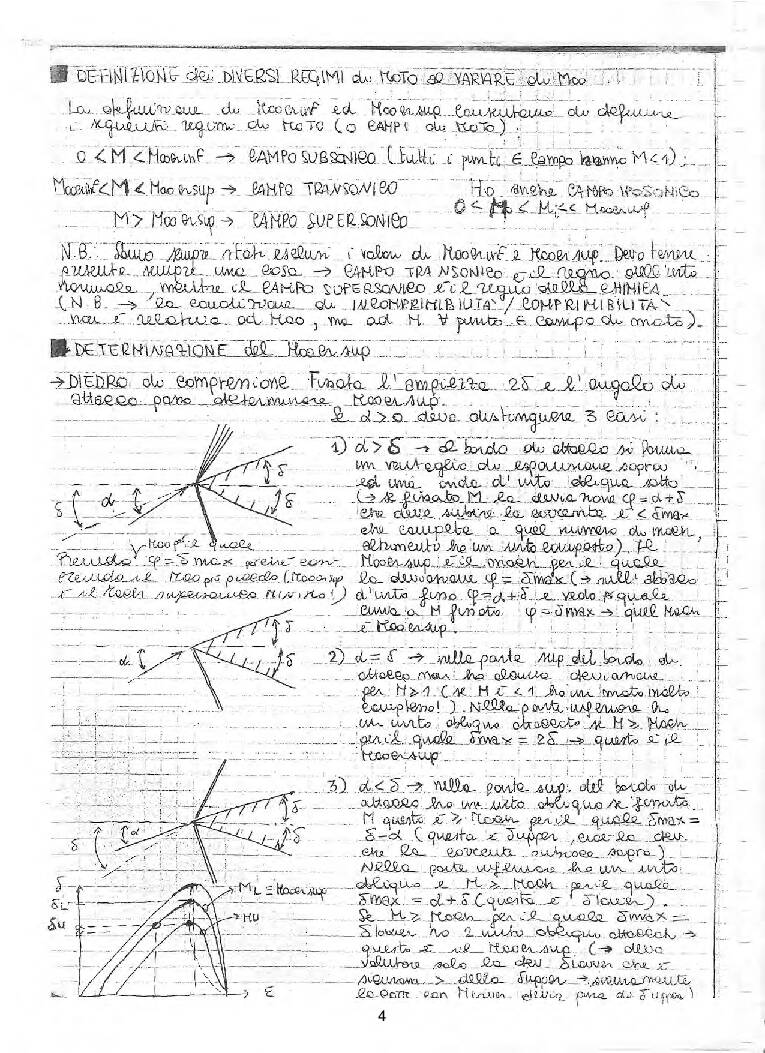 DEFINIZIONE dei DIVERSI REGIMI di MOTO al VARIARE di M∞
La definizione di M∞crinf ed M∞crsup consentono di definire
i seguenti regimi di MOTO (o CAMPI di MOTO):
0 < M < M∞crinf → CAMPO SUBSONICO (tutti i punti ∈ campo hanno M<1);
M∞crinf < M < M∞crsup → CAMPO TRANSONICO
Ho anche CAMPO IPOSONICO
0 < M < M << M∞crinf
M > M∞crsup → CAMPO SUPERSONICO
N.B. Sono sempre stati esclusi i valori di M∞crinf e M∞crsup. Devo tenere
presente sempre una cosa → CAMPO TRANSONICO è il regno dell'urto
normale, mentre il CAMPO SUPERSONICO è il regno della CHIMICA
(N.B. → la condizione di INCOMPRIMIBILITA'/COMPRIMIBILITA'
non è relativa ad M∞, ma ad M ∀ punto ∈ campo di moto).
DETERMINAZIONE del M∞crsup
→ DIEDRO di compressione. Fissata l'ampiezza 2δ e l'angolo di
attacco posso determinare M∞crsup.
Se α>0 devo distinguere 3 casi:
1) α>δ → al bordo di attacco si forma
un ventaglio di espansione sopra
ed una onda d'urto obliqua sotto
(→ se fissato M la deviazione φ=α+δ
che deve subire la corrente è < δmax
che compete a quel numero di mach,
altrimenti ho un urto composto). Il
M∞crsup è il mach per il quale
la deviazione φ = δmax (→ sull'abaco
d'urto fisso φ=α+δ e vedo quale
curva a M fissato φ=δmax → quel Mach
è M∞crsup.
δ α δ δ
M∞ il quale
Prendo φ=δmax perché così
prendo il M∞ più piccolo (M∞crsup
è il Mach supersonico MINIMO!)
2) α = δ → nella parte sup del bordo di
attacco non ho alcuna deviazione
per M≥1 (se M è <1 ho un moto molto
complesso!). Nella parte inferiore ho
un urto obliquo attaccato se M ≥ Mach
per il quale δmax = 2δ → questo è il
M∞crsup
α δ δ
3) α<δ → nella parte sup. del bordo di
attacco ho un urto obliquo se fissato
M questo è ≥ Mach per il quale δmax =
δ-α (questa è δupper, cioè la dev.
che la corrente subisce sopra)
Nella parte inferiore ho un urto
obliquo e M ≥ Mach per il quale
δmax = α+δ (questa è δlower).
Se M ≥ Mach per il quale δmax =
δlower ho 2 urti obliqui attaccati →
questo è il M∞crsup. (→ devo
valutare solo la dev δlower che è
sicuram > della δupper → sicuramente
δ α δ δ
δ
δL
δU
ML ≡ M∞crsup
MU
ε
4